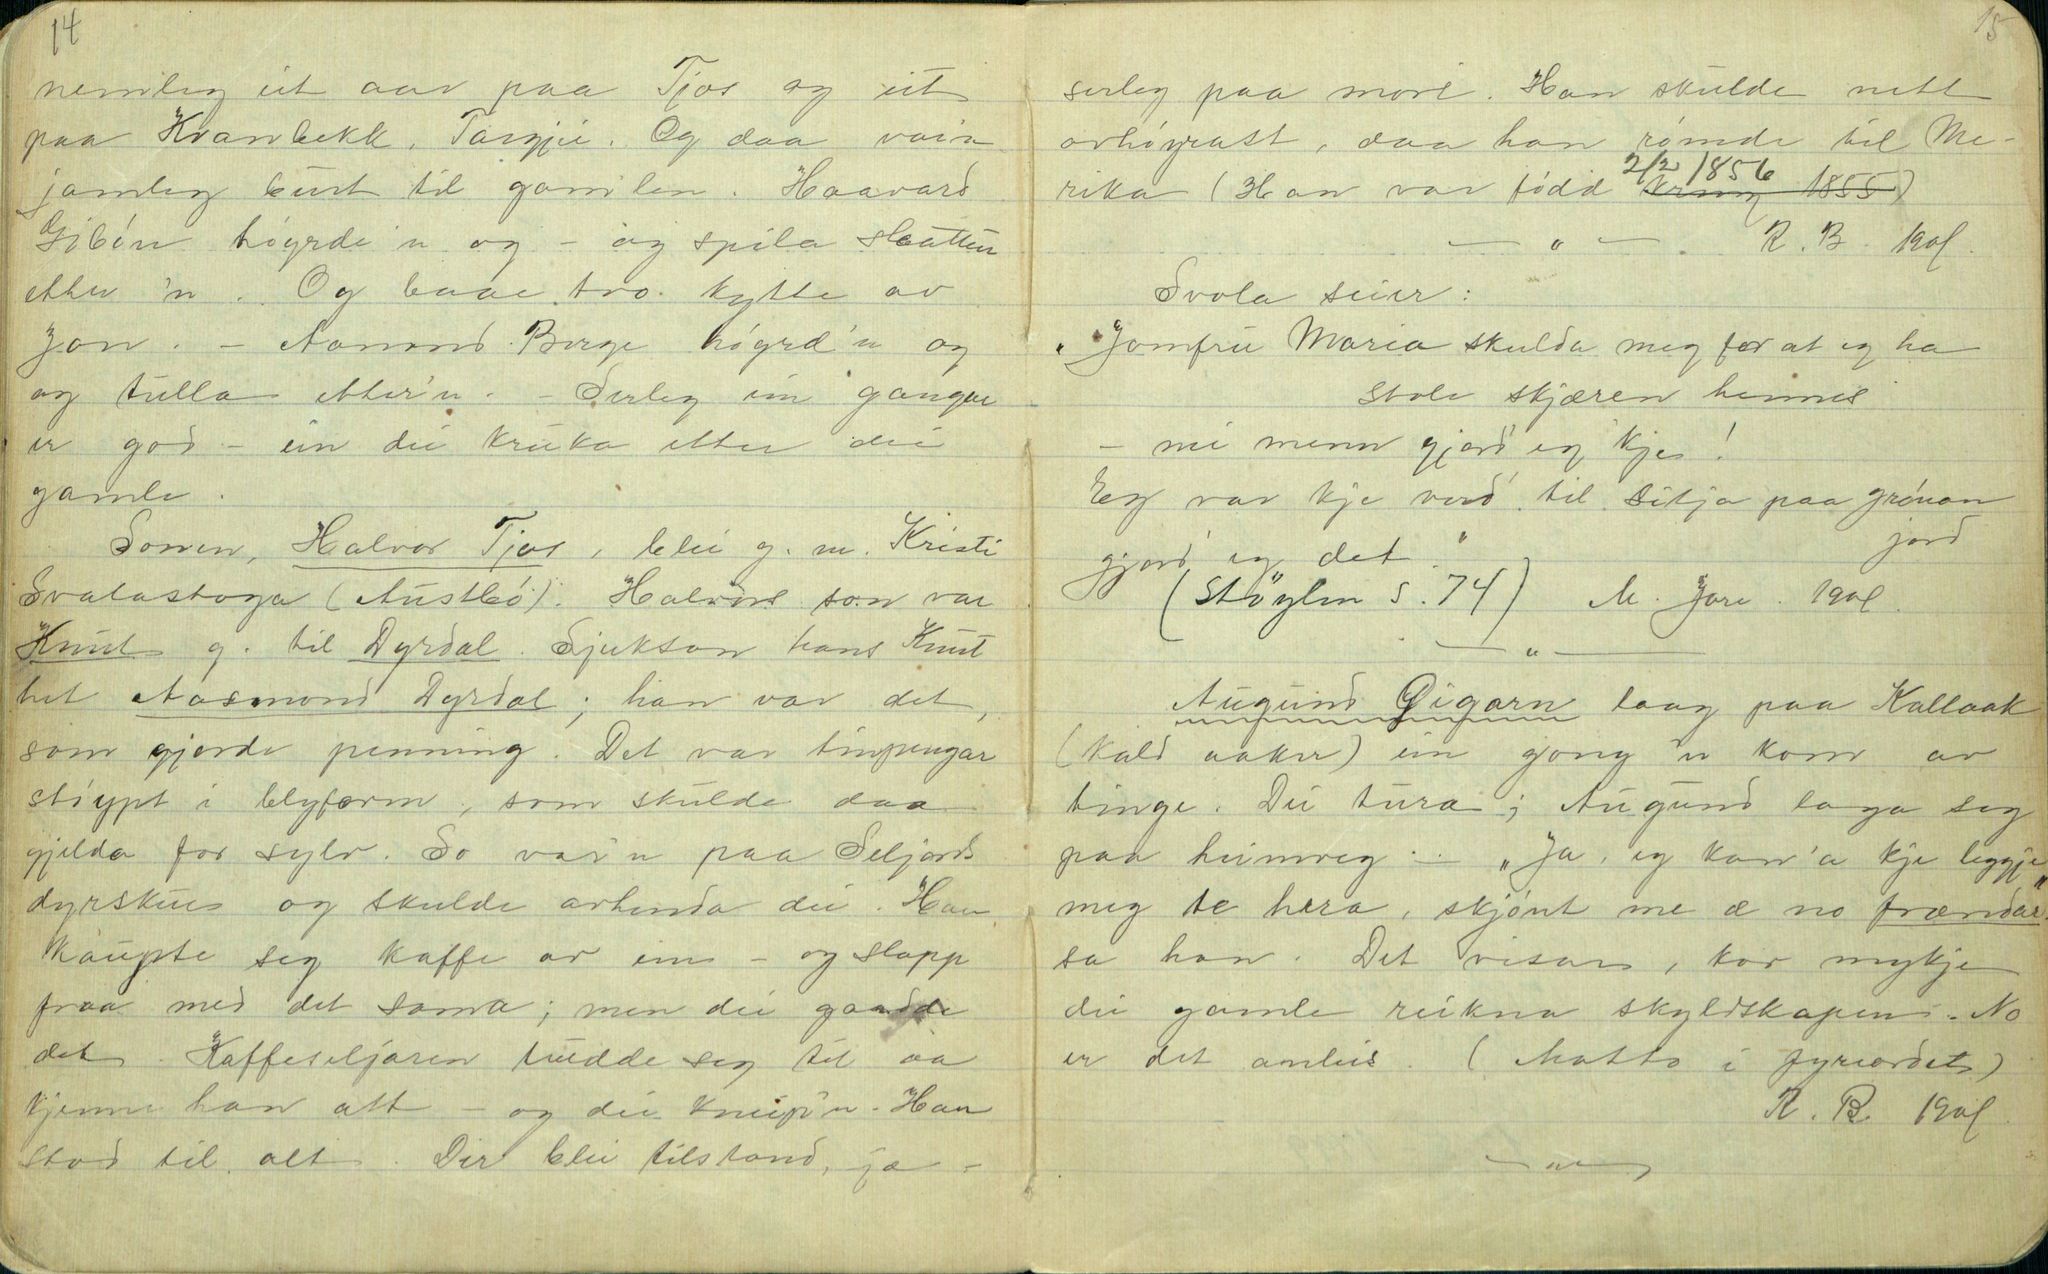 14
nemleg eit aar paa Tjos og eit
paa Kvanbekk, Targjei. Og daa var'n
jamleg burt til gamlen. Haavard
Gibøn høyrde 'n og - og spila slaatten
etter 'n. Og baae tvo kytte av
Jon. - Aamund Berge høyrd'n og
og tulla etter'n. - Serleg ein gangar
er god - ein dei kruka etter dei
gamle.
Sonen, Halvor Tjos, blei g. m. Kristi
Svalastoga (Austbø). Halvors son var
Knut g. til Dyrdal. Sjukson hans Knut
het Aasmond Dyrdal; han var det,
som gjorde penning. Det var tinpengar
støypt i blyform, som skulde daa
gjelda for sylv. So var'n paa Seljords
dyrskue og skulde avhenda dei. Han
kaupte seg kaffe av ein - og slapp
fraa med det sama; men dei gaadde
det. Kaffeseljaren tudde seg til aa
kjenne han att - og dei kneip'n. Han
stod til alt. Der blei tilstand, ja -
15
serleg paa mori. Han skulde nett
avhøyrast, daa han rømde til Me-
rika (Han var fødd 2/2 1856 kring 1855)
— " — R. B. 1908.
Svola seier:
"Jomfru Maria skulda meg for at eg ha
stole skjæren hennes
- nei menn gjord' eg 'kje!
Eg var kje verd' til sitja paa grønan
jord
gjord' eg det."
(Støylen s. 74) M. Jore. 1908.
— " —
Augund Øigarn laag paa Kallaak
(kald aaker) ein gong 'n kom av
tinge. Dei tura; Augund laga seg
paa heimveg. - "Ja, eg kan'a kje leggje
meg te hera, skjønt me æ no frændar"
sa han. Det visar, kor mykje
dei gamle reikna skyldskapen. No
er det anleis. (Motto i fyreordet)
R. B. 1908.
— " —